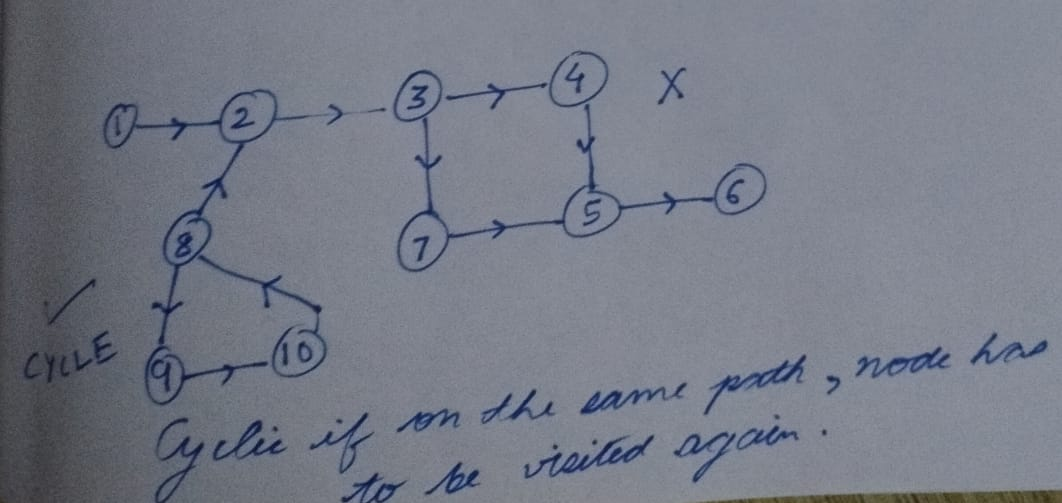 1 2 3 4 X
8 7 5 6
CYCLE 9 10
Cyclic if on the same path, node has
to be visited again.